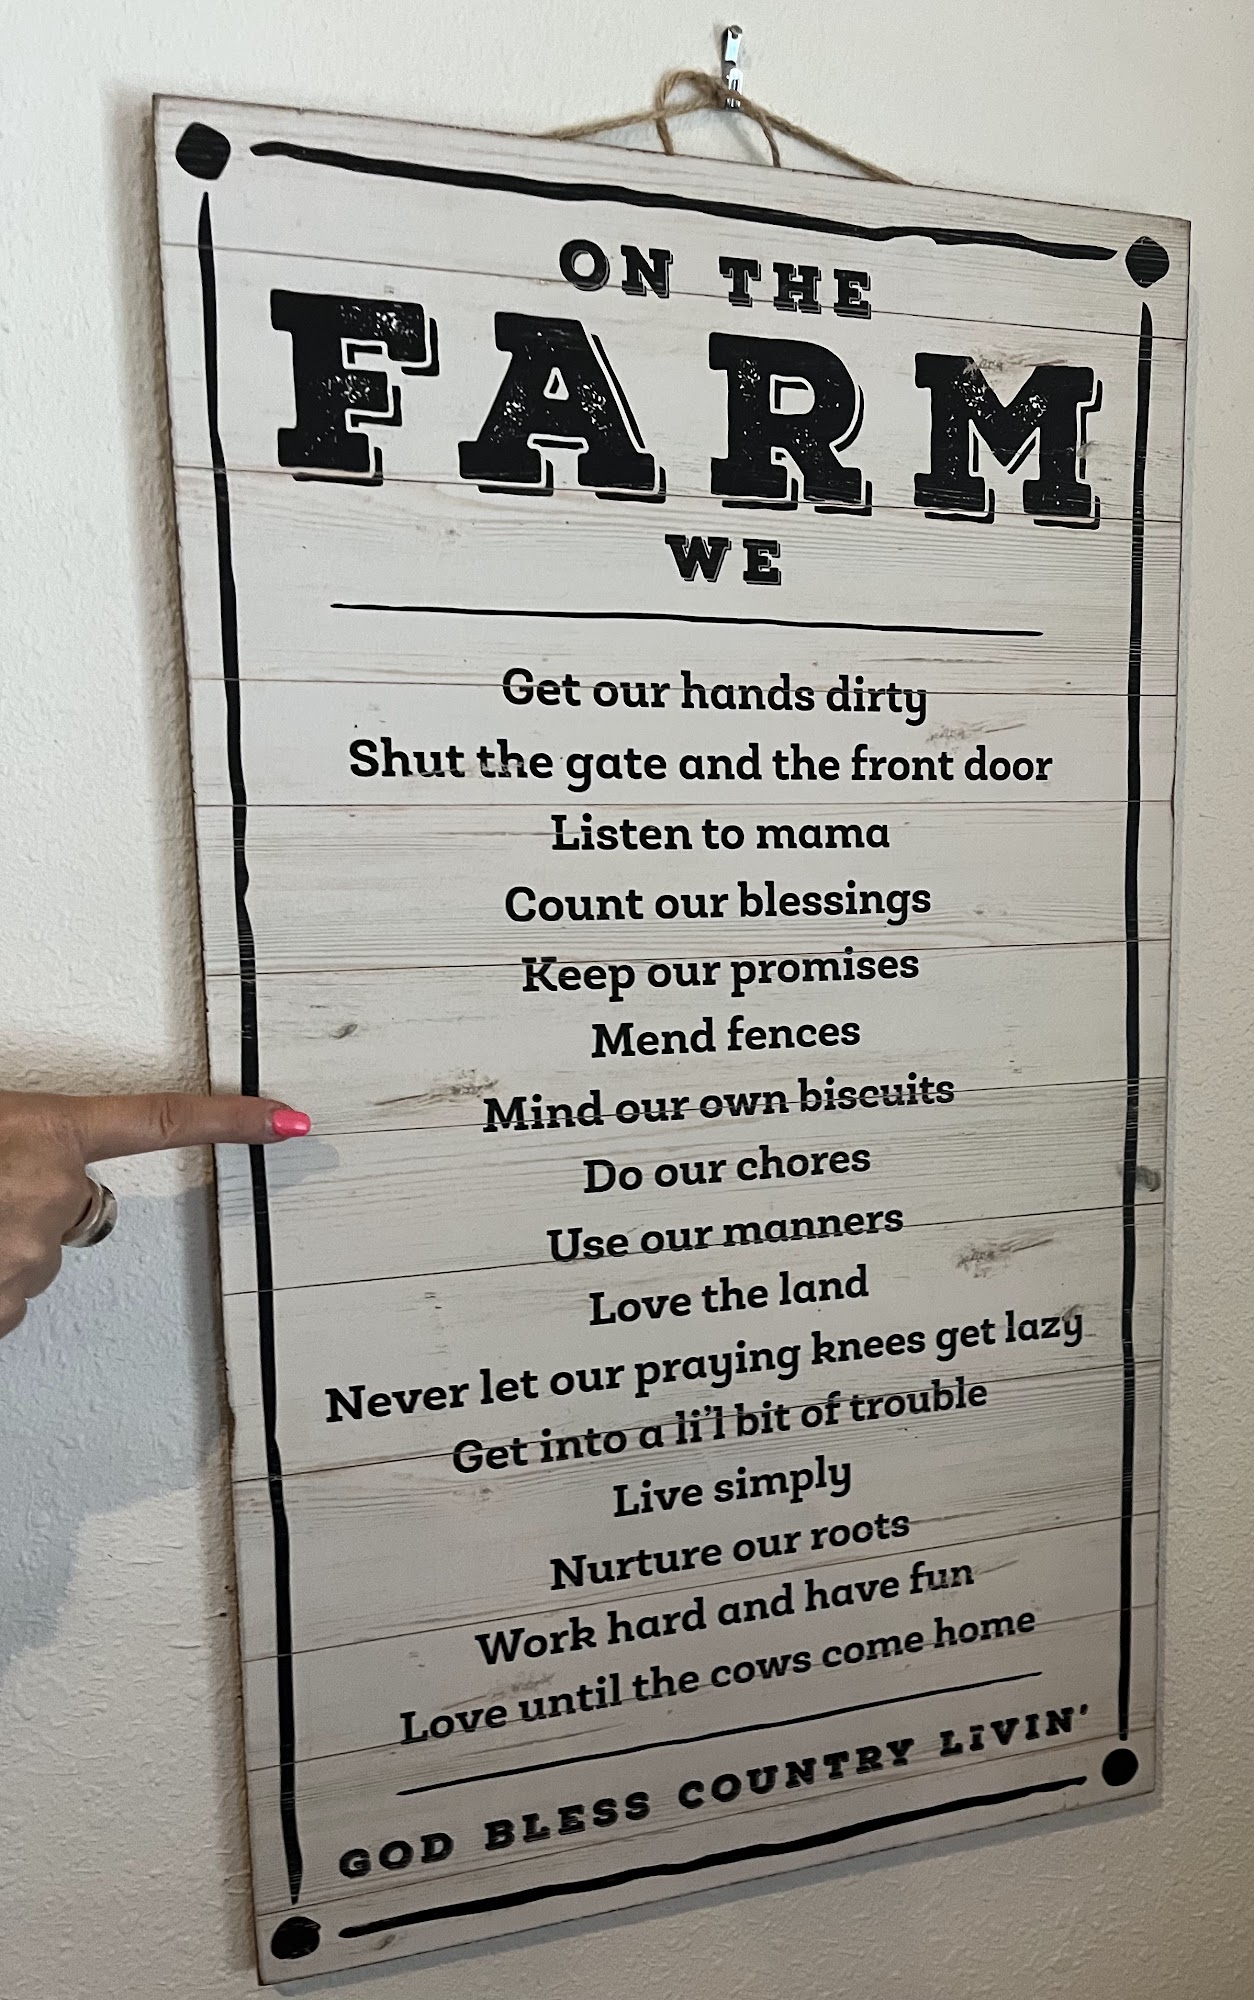 ON THE
FARM
WE
Get our hands dirty
Shut the gate and the front door
Listen to mama
Count our blessings
Keep our promises
Mend fences
Mind our own biscuits
Do our chores
Use our manners
Love the land
Never let our praying knees get lazy
Get into a li’l bit of trouble
Live simply
Nurture our roots
Work hard and have fun
Love until the cows come home
GOD BLESS COUNTRY LIVIN’